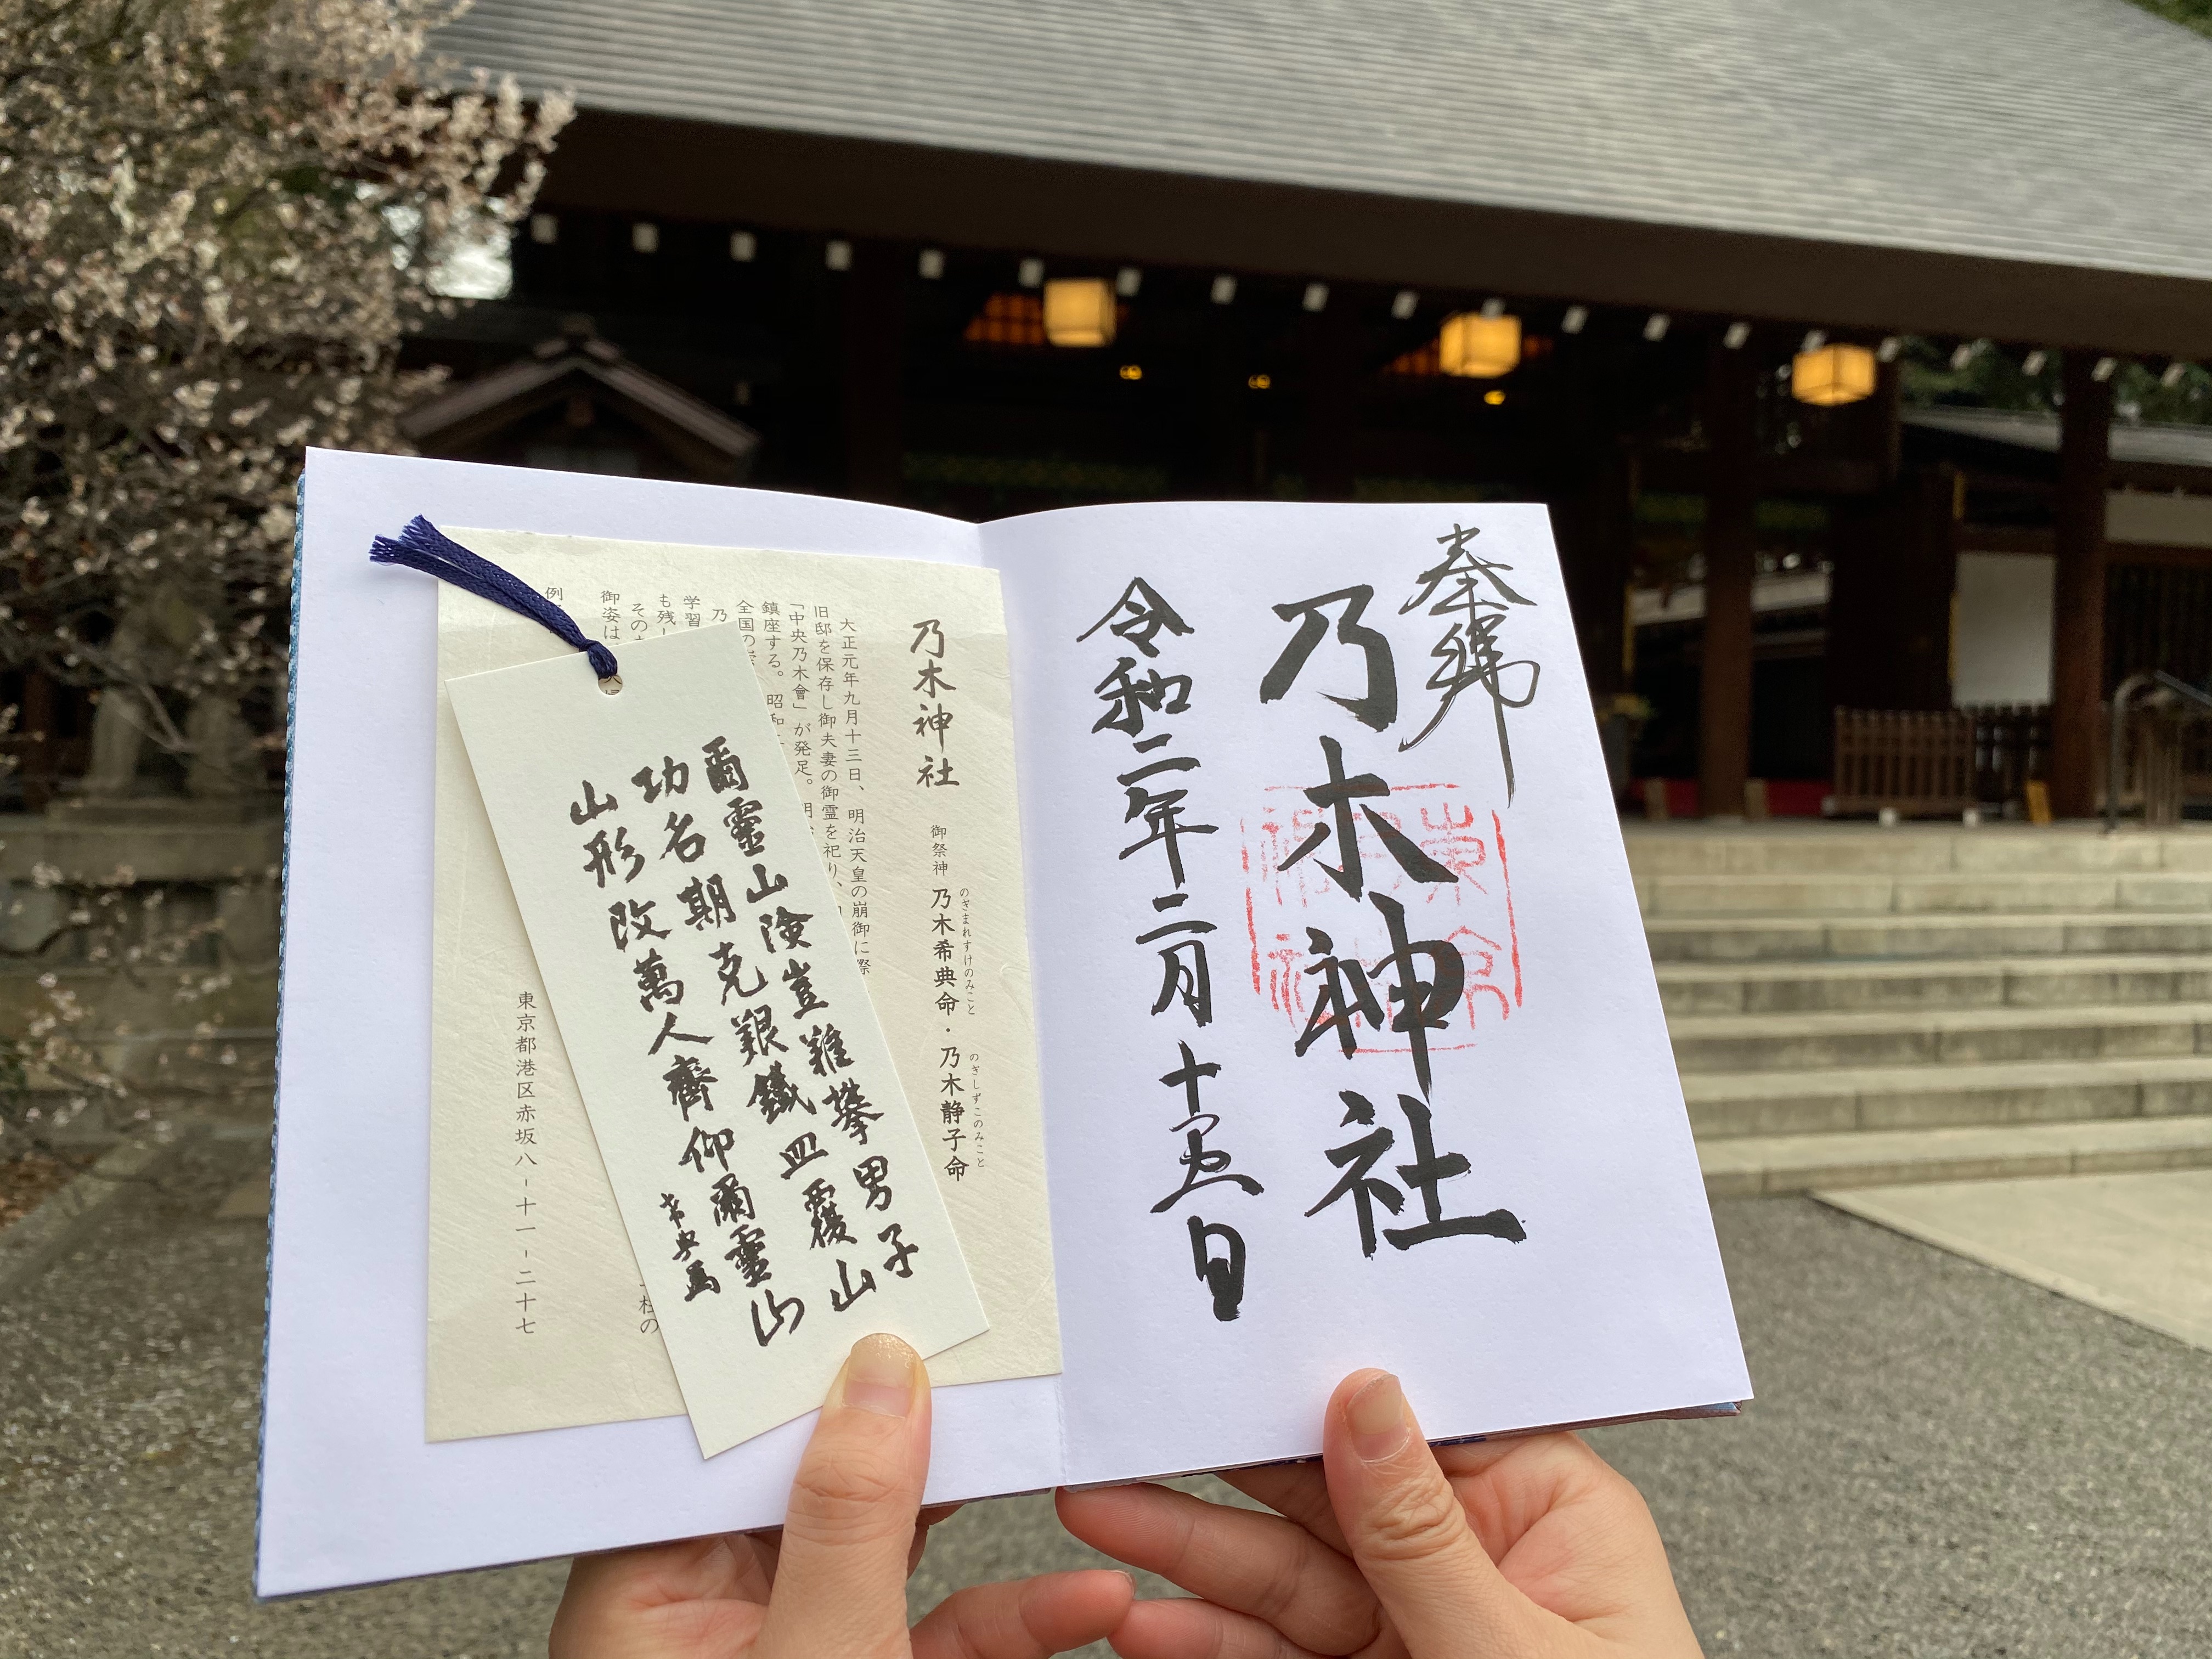 奉拝
乃木神社
令和二年二月十五日
乃木神社
御祭神 乃木希典命・乃木静子命
のぎまれすけのみこと
のぎしずこのみこと
大正元年九月十三日、明治天皇の崩御に際
旧邸を保存し御夫妻の御霊を祀り、
「中央乃木會」が発足。明
鎮座する。昭和
全国の
乃
学習
も残し
その
御姿は
柱の
例
東京都港区赤坂八-十一-二十七
爾靈山険豈難攀男子
功名期克艱鐵血覆山
山形改萬人齊仰爾靈山
希典書